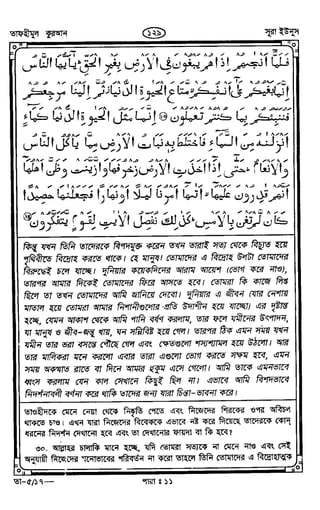 তাফহীমুল কুরআন
১২৯
সূরা ইউনুস
فَلَمَّآ أَنْجٰىهُمْ إِذَا هُمْ يَبْغُوْنَ فِى الْأَرْضِ بِغَيْرِ الْحَقِّ ۗ يٰٓأَيُّهَا النَّاسُ
إِنَّمَا بَغْيُكُمْ عَلٰٓى أَنْفُسِكُمْ مَّتَاعَ الْحَيٰوةِ الدُّنْيَا ثُمَّ إِلَيْنَا مَرْجِعُكُمْ
فَنُنَبِّئُكُمْ بِمَا كُنْتُمْ تَعْمَلُوْنَ ﴿۲۳﴾ إِنَّمَا مَثَلُ الْحَيٰوةِ الدُّنْيَا كَمَآءٍ
أَنْزَلْنٰهُ مِنَ السَّمَآءِ فَاخْتَلَطَ بِهٖ نَبَاتُ الْأَرْضِ مِمَّا يَأْكُلُ النَّاسُ
وَالْأَنْعَامُ ۗ حَتّٰىٓ إِذَآ أَخَذَتِ الْأَرْضُ زُخْرُفَهَا وَازَّيَّنَتْ وَظَنَّ أَهْلُهَآ
أَنَّهُمْ قٰدِرُوْنَ عَلَيْهَآ ۙ أَتٰىهَآ أَمْرُنَا لَيْلًا أَوْ نَهَارًا فَجَعَلْنٰهَا حَصِيْدًا
كَأَنْ لَّمْ تَغْنَ بِالْأَمْسِ ۗ كَذٰلِكَ نُفَصِّلُ الْاٰيٰتِ لِقَوْمٍ يَّتَفَكَّرُوْنَ ﴿۲۴﴾
কিন্তু যখন তিনি তাদেরকে বিপদমুক্ত করেন তখন তারাই সত্য থেকে বিচ্যুত হয়ে
পৃথিবীতে বিদ্রোহ করতে থাকে। হে মানুষ! তোমাদের এ বিদ্রোহ উল্টা তোমাদের
বিরুদ্ধেই চলে যাচ্ছে। দুনিয়ার কয়েকদিনের আরাম আয়েশ (ভোগ করে নাও),
তারপর আমার দিকেই তোমাদের ফিরে আসতে হবে। তোমরা কি কাজে লিপ্ত
ছিলে তা তখন তোমাদের আমি জানিয়ে দেবো। দুনিয়ার এ জীবন (যার নেশায়
মাতাল হয়ে তোমরা আমার নিশানীগুলোর প্রতি উদাসীন হয়ে যাচ্ছো) এর দৃষ্টান্ত
হচ্ছে, যেমন আকাশ থেকে আমি পানি বর্ষণ করলাম, তার ফলে যমীনের উৎপাদন,
যা মানুষ ও জীব-জন্তু খায়, ঘন সন্নিবিষ্ট হয়ে গেল। তারপর ঠিক এমন সময় যখন
যমীন তার ভরা বসন্তে পৌঁছে গেল এবং ক্ষেতগুলো শস্যশ্যামল হয়ে উঠলো। আর
তার মালিকরা মনে করলো এবার তারা এগুলো ভোগ করতে সক্ষম হবে, এমন
সময় অকস্মাৎ রাতে বা দিনে আমার হুকুম এসে গেলো। আমি তাকে এমনভাবে
ধ্বংস করলাম যেন কাল সেখানে কিছুই ছিল না। এভাবে আমি বিশদভাবে
নিদর্শনাবলী বর্ণনা করে থাকি তাদের জন্য যারা চিন্তা-ভাবনা করে।
তাওহীদকে মেনে নেয়া থেকে নিষ্কৃতি পেতে এবং নিজেদের শিরকের ওপর অবিচল
থাকতে চাও। এখন যারা নিজেদের বিবেককে এভাবে নষ্ট করে দিয়েছে তাদেরকে কোন্
ধরনের নিদর্শন দেখানো হবে এবং তা দেখানোর ফায়দা বা কি হবে?
৩০. আল্লাহর চালাকি মানে হচ্ছে, যদি তোমরা সত্যকে না মেনে নাও এবং সেই
অনুযায়ী নিজেদের মনোভাবের পরিবর্তন না করো তাহলে তিনি তোমাদের এ বিদ্রোহাত্মক
তা-৫/১৭—
পারা : ১১